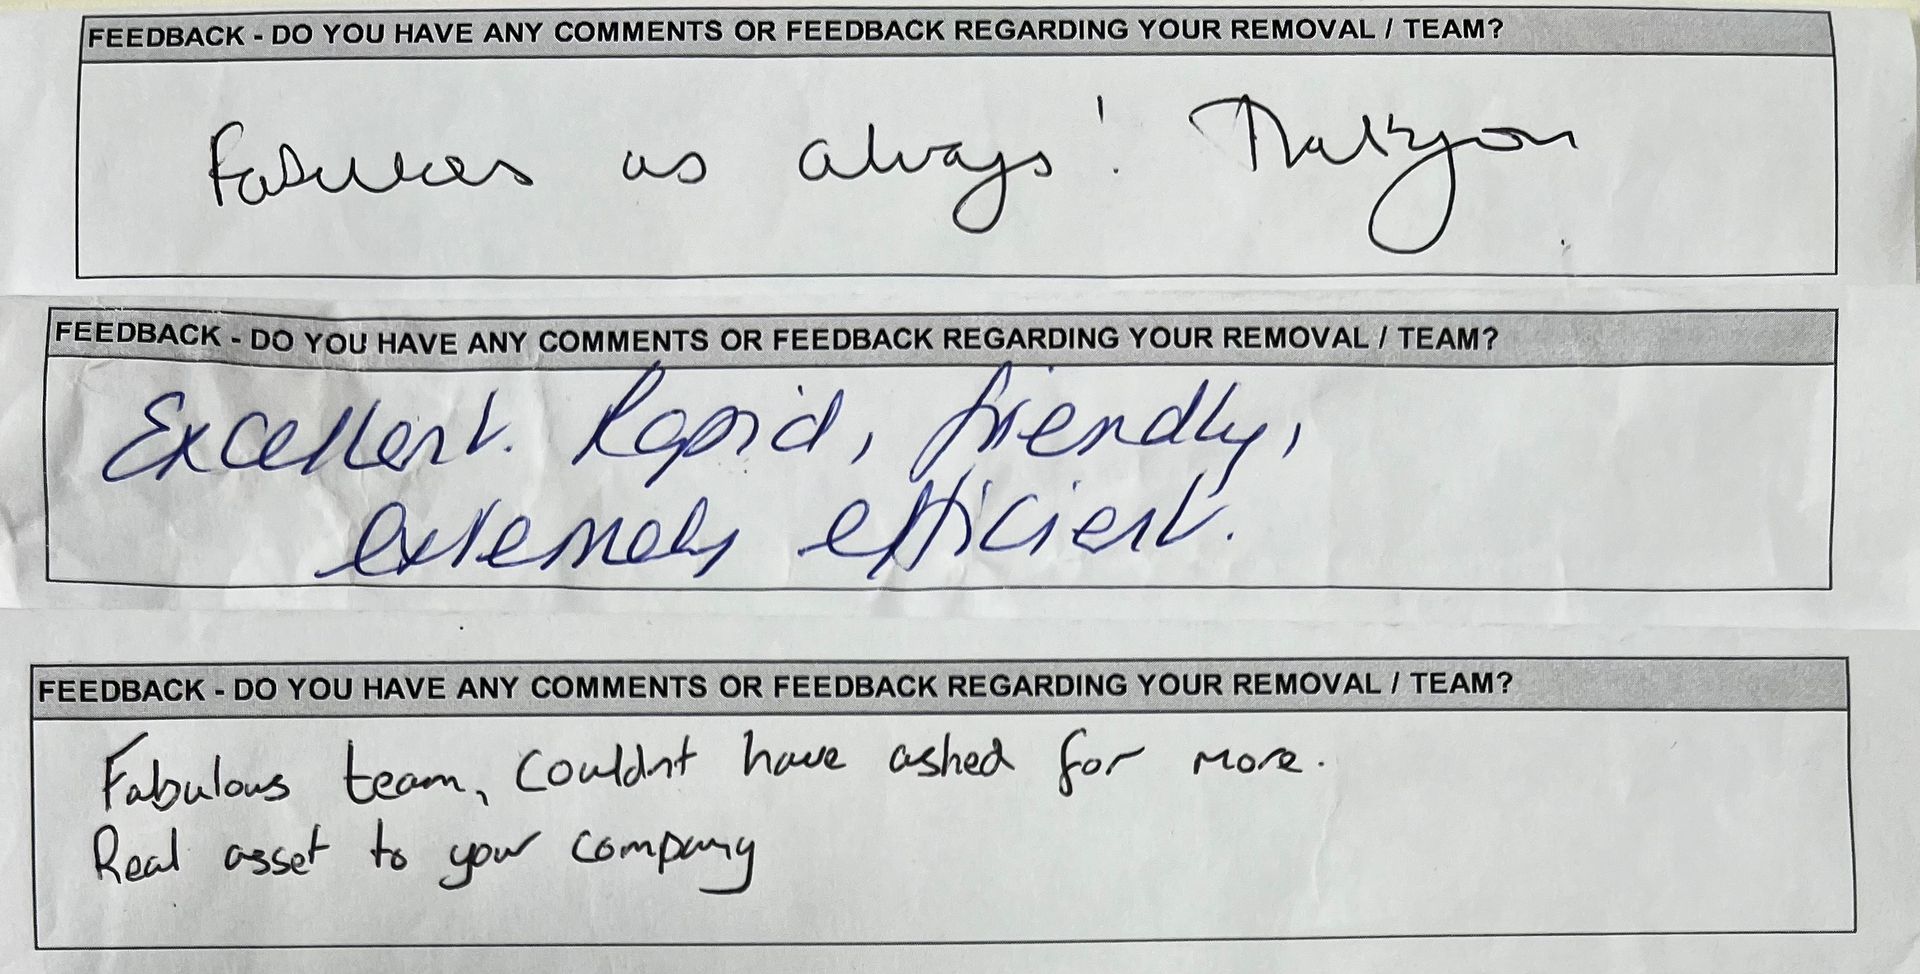 FEEDBACK - DO YOU HAVE ANY COMMENTS OR FEEDBACK REGARDING YOUR REMOVAL / TEAM?
Fabulous as always! Thankyou
FEEDBACK - DO YOU HAVE ANY COMMENTS OR FEEDBACK REGARDING YOUR REMOVAL / TEAM?
Excellent. Rapid, friendly,
extremely efficient.
FEEDBACK - DO YOU HAVE ANY COMMENTS OR FEEDBACK REGARDING YOUR REMOVAL / TEAM?
Fabulous team, Couldnt have asked for more.
Real asset to your company